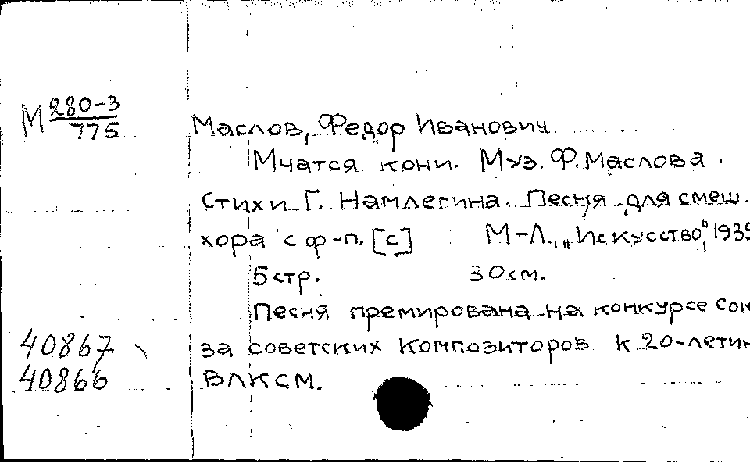 М 280-3
775
Маслов, Федор Иванович
Мчатся кони. Муз. Ф. Маслова.
Стихи Г. Намлегина. Песня для смеш.
хора с ф-п. [c] М-Л., „Искусство", 1939
5 стр. 30 см.
Песня премирована на конкурсе Сою
за советских композиторов к 20-летию
ВЛКСМ.
40867
40866